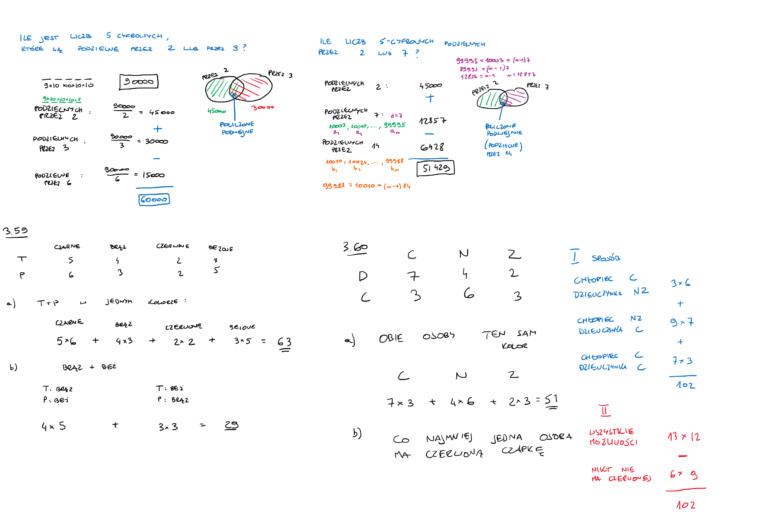 ILE JEST LICZB 5 CYFROWYCH,
KTÓRE SĄ PODZIELNE PRZEZ 2 LUB PRZEZ 3?
9×10×10×10×10
90000
9×10×10×10×5
PODZIELNYCH PRZEZ 2 :
90000 / 2 = 45000
+
PODZIELNYCH PRZEZ 3 :
90000 / 3 = 30000
−
PODZIELNE PRZEZ 6 :
90000 / 6 = 15000
60000
PRZEZ 2
PRZEZ 3
45000
30000
POLICZONE
PODWÓJNIE
ILE LICZB 5-CYFROWYCH PODZIELNYCH
PRZEZ 2 LUB 7 ?
PODZIELNYCH PRZEZ 2 :
45000
+
PODZIELNYCH PRZEZ 7 : r=7
10003, 10010, ..., 99995
a₁ a₂ aₙ
12857
−
PODZIELNYCH PRZEZ 14
6428
10010, 10024, ..., 99988
b₁ b₂ bₙ
51429
99988 = 10010 + (n-1)14
99995 = 10003 + (n-1)7
89992 = (n-1)7
12856 = n-1
n = 12857
PRZEZ 2
PRZEZ 7
POLICZONE
PODWÓJNIE
(PODZIELNE)
PRZEZ 14
3.59
CZARNE BRĄZ CZERWONE BEŻOWE
T 5 4 2 3
P 6 3 2 5
a) T+P W JEDNYM KOLORZE :
CZARNE BRĄZ CZERWONE BEŻOWE
5×6 + 4×3 + 2×2 + 3×5 = 63
b) BRĄZ + BEŻ
T: BRĄZ T: BEŻ
P: BEŻ P: BRĄZ
4×5 + 3×3 = 29
3.60
C N Z
D 7 4 2
C 3 6 3
a) OBIE OSOBY TEN SAM
KOLOR
C N Z
7×3 + 4×6 + 2×3 = 51
b) CO NAJMNIEJ JEDNA OSOBA
MA CZERWONĄ CZAPKĘ
I SPOSÓB
CHŁOPIEC C
DZIEWCZYNKA NZ
3×6
+
CHŁOPIEC NZ
DZIEWCZYNKA C
9×7
+
CHŁOPIEC C
DZIEWCZYNKA C
7×3
102
II
WSZYSTKIE
MOŻLIWOŚCI
13×12
−
NIKT NIE
MA CZERWONEJ
6×9
102